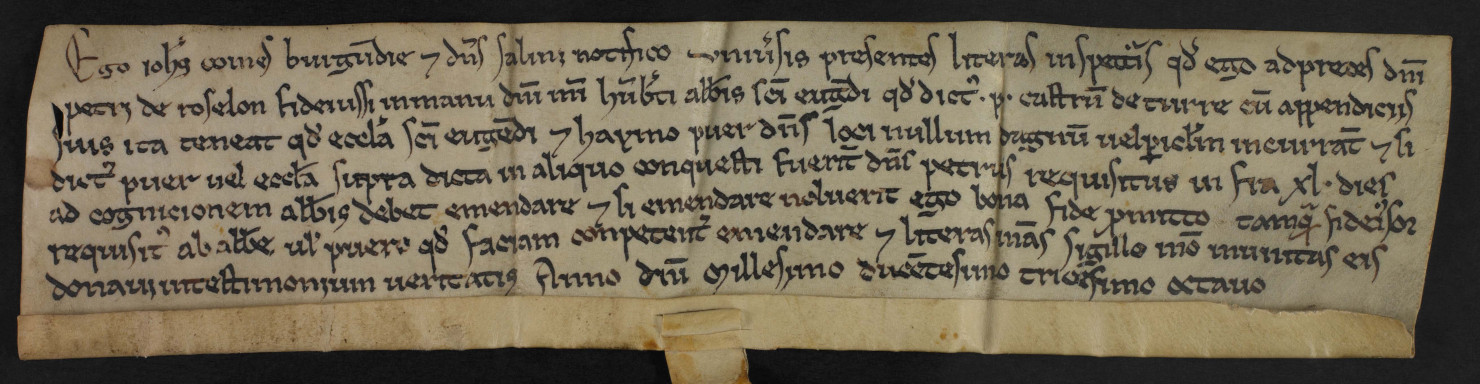 Ego ioħs comes burgundie ⁊ dn̄s salinz notifico uniu͛sis presentes literas inspectur͛ qd̓ ego ad preces dn̄i
petri de roselon fideiussi in manu dn̄i mī hūb͛ti abb̄is sc̄i eugēdi qd̓ dict͛ · p · castrū de turre cū appendiciis
suis ita teneat qd̓ eccl̄a sc̄i eugēdi ⁊ haymo puer dn̄s loci nullum dāgnū uel piclm̄ incurrāt ⁊ si
dict͛ puer uel eccl̄a supra dicta in aliquo conquesti fuerīt dn̄s petrus requisitus infra xl · dies
ad cognicionem abb̄is debet emendare ⁊ si emendare noluerit ego bona fide pmitto tamq̄ fideiussor
requisit͛ ab abb̄e ul̄ puero qd̓ faciam conpetent͛ emendare ⁊ literas mās sigillo mō munitas eis
donaui in testimonium ueritatis Anno dn̄i Millesimo ducētesimo tricesimo octauo